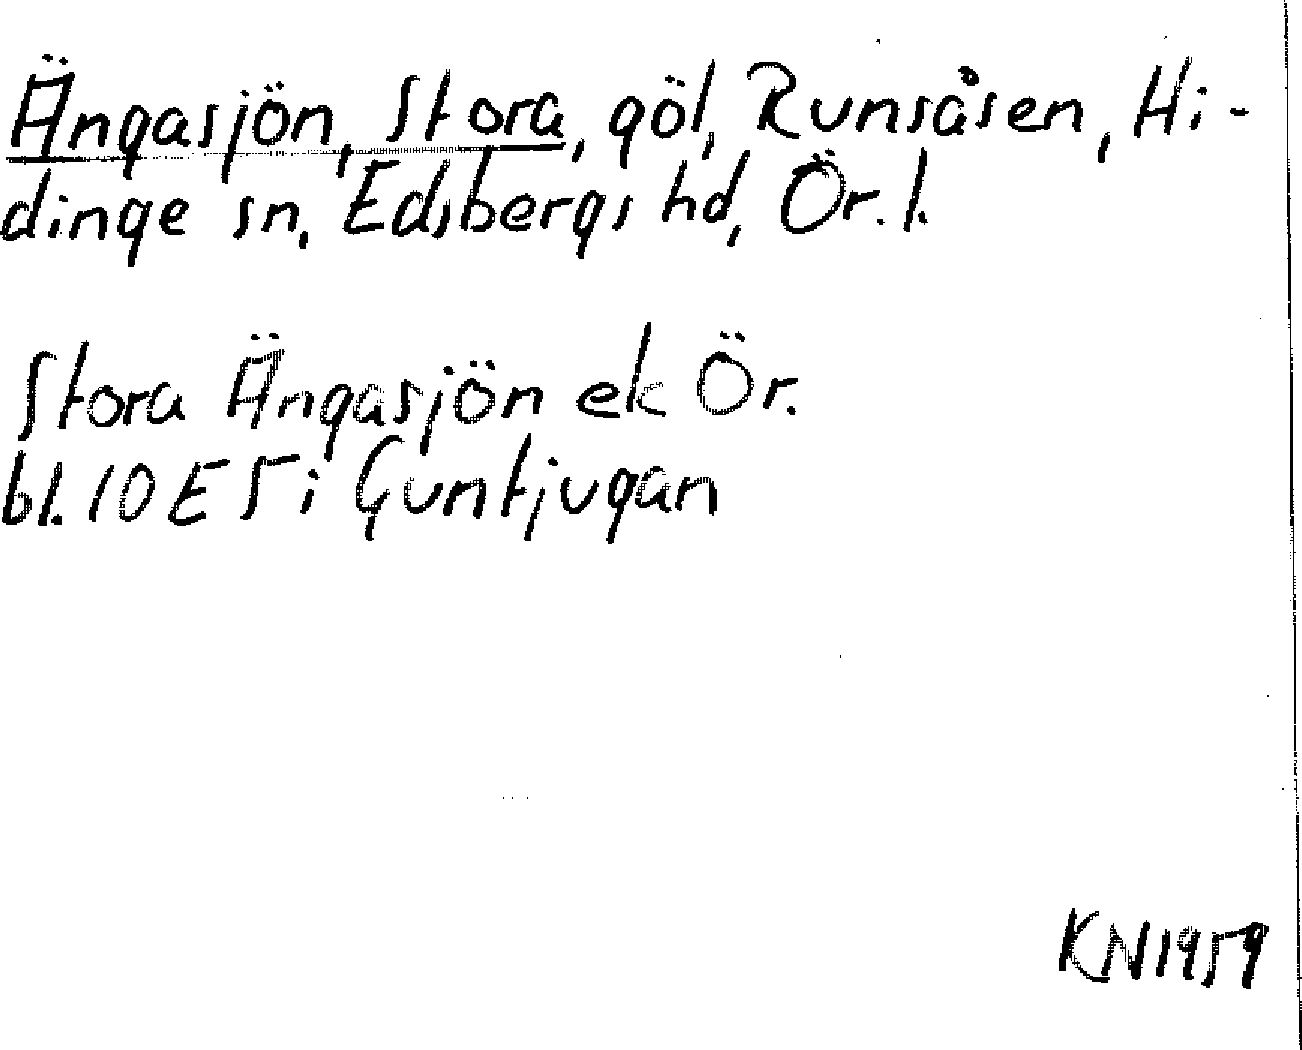 Ängasjön, Stora, göl, Runsåsen, Hi-
dinge sn, Edsbergs hd, Ör. l.
Stora Ängasjön ek Ör.
bl. 10 E 5 i Guntjugan
KN1959